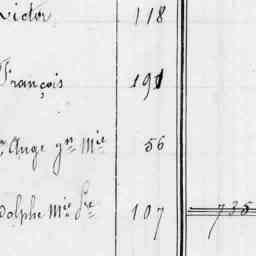 Victor 118
François 191
Ange gn Mie 56
dolphe Mis Fre 107 735